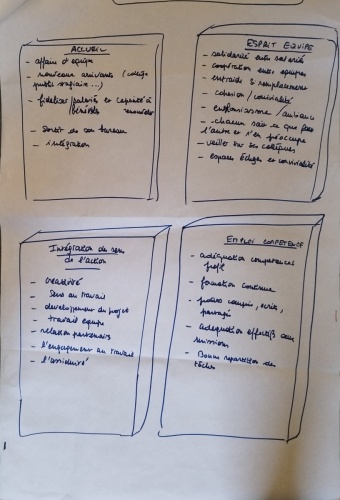 ACCUEIL
- affair d'équipe
- nouveaux arrivants (collège
public
- fidéliser/salariés et capacité à
/bénévoles
- Sortir de son bureau
- intégration
ESPRIT EQUIPE
- solidarité entre salariés
- coopération entre équipes
- entraide & remplacement
- cohésion/convivialité
- enthousiasme/ambiance
- chacun sait ce que fait
l'autre et s'en préoccupe
- veiller sur ses collègues
- espaces échanges et convivialité
Intégration du sens
de l'action
- créativité
- Sens au travail
- développement du projet
- travail équipe
- relation partenaires
- l'engagement au travail
- l'assiduité
EMPLOI COMPETENCE
- adéquation compétences
profil
- formation continue
- projet compris, écrit,
partagé
- adéquation effectifs aux
missions
- Bonne répartition des
tâches